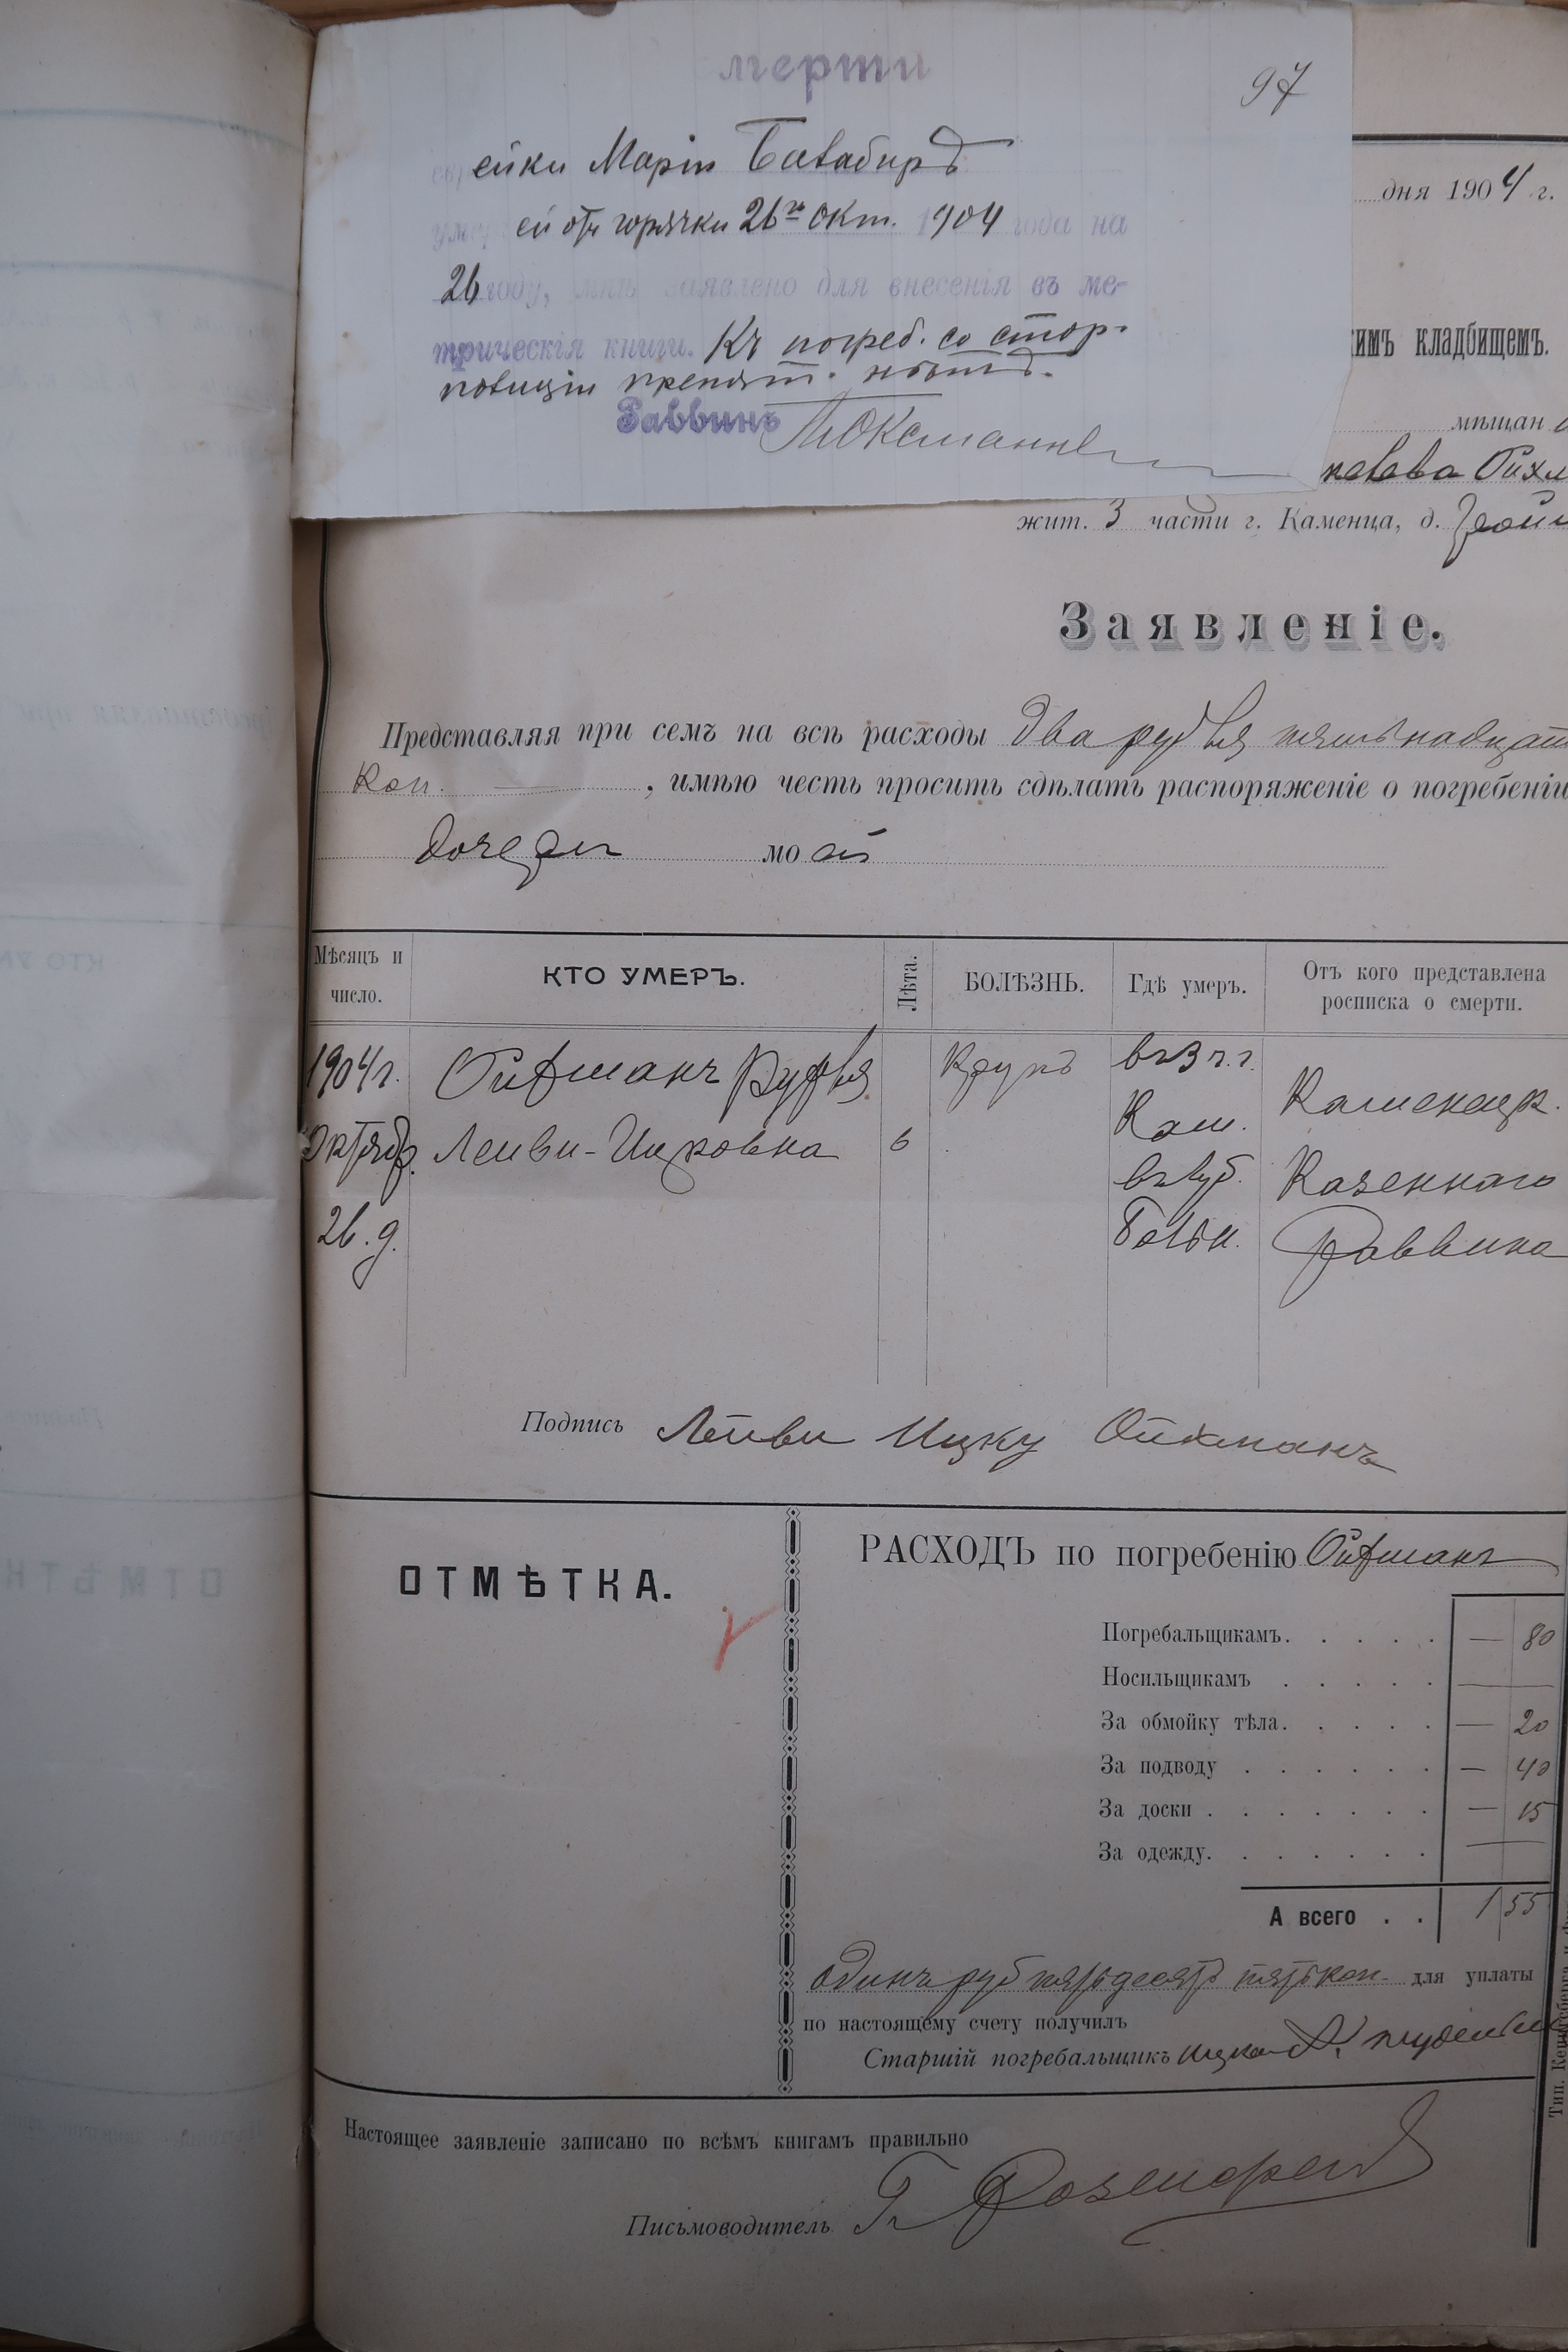 мерти
97
ейки Маріи
умер ей отъ горячки 26го Окт. 1904 года на
26 году, мнѣ заявлено для внесенія въ ме-
трическія книги. Къ погреб. со стор.
полиціи препят. нѣтъ.
Раввинъ
дня 1904 г.
кимъ кладбищемъ.
мѣщан
жит. 3 части г. Каменца, д.
Заявленіе.
Представляя при семъ на всѣ расходы два рубля пятьнадцат
коп. , имѣю честь просить сдѣлать распоряженіе о погребеніи
дочери моей
Мѣсяцъ и число.
КТО УМЕРЪ.
Лѣта.
БОЛѢЗНЬ.
Гдѣ умеръ.
Отъ кого представлена росписка о смерти.
1904 г. Октябр. 26. д.
Ойфманъ Рухля
Лейви-Ицковна
6
Крупъ
въ 3 ч. г.
Кам.
въ губ.
больн.
Каменецк.
Казеннаго
Раввина
Подпись Лейви Ицку Ойхманъ
ОТМѢТКА.
РАСХОДЪ по погребенію Ойфманъ
Погребальщикамъ. . . . . — 80
Носильщикамъ . . . . . —
За обмойку тѣла. . . . . — 20
За подводу . . . . . . — 40
За доски . . . . . . . — 15
За одежду. . . . . . . —
А всего . . 1 55
одинъ руб пятьдесятъ пять коп. для уплаты
по настоящему счету получилъ
Старшій погребальщикъ Ицко
Настоящее заявленіе записано по всѣмъ книгамъ правильно
Письмоводитель Г. Розенфельд